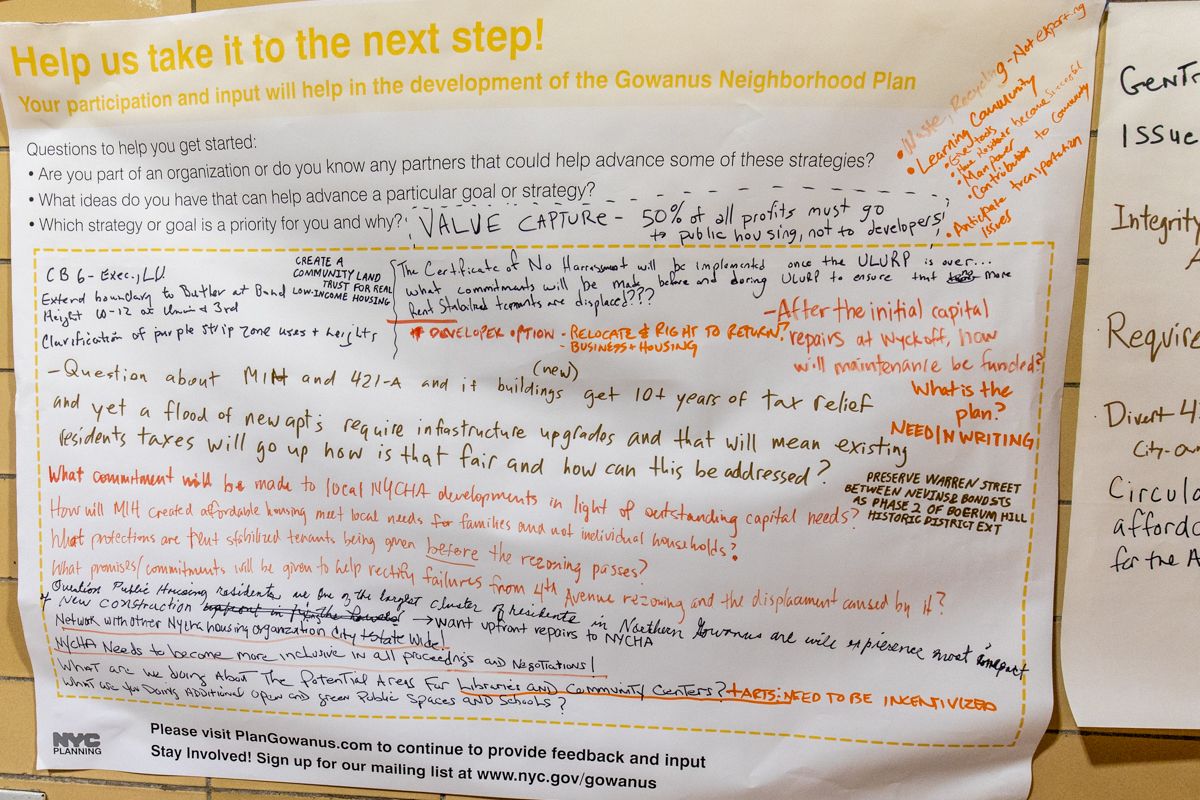 Help us take it to the next step!
Your participation and input will help in the development of the Gowanus Neighborhood Plan
Questions to help you get started:
• Are you part of an organization or do you know any partners that could help advance some of these strategies?
• What ideas do you have that can help advance a particular goal or strategy?
• Which strategy or goal is a priority for you and why?
VALUE CAPTURE - 50% of all profits must go
↦ public housing, not to developers!
• Waste, Recycling - Not exporting
• Learning Community
• Give tools
• How Residents become successful
• Manpower
• Contribution to Community
transportation
• Anticipate
Issues
CB 6 - Exec., LU
Extend boundary to Butler at Bond
Height 10-12 at Union & 3rd
Clarification of purple strip zone uses + heights
CREATE A
COMMUNITY LAND
TRUST FOR REAL
LOW-INCOME HOUSING
The Certificate of No Harrassment will be implemented once the ULURP is over...
what commitments will be made before and during ULURP to ensure that more
Rent Stabilized tennants are displaced???
DEVELOPER OPTION - RELOCATE & RIGHT TO RETURN?
- BUSINESS + HOUSING
- After the initial capital
repairs at Wyckoff, how
will maintenance be funded?
What is the
plan?
NEED IN WRITING
- Question about MIH and 421-A and if (new) buildings get 10+ years of tax relief
and yet a flood of new apt's require infastructure upgrades and that will mean existing
residents taxes will go up how is that fair and how can this be addressed?
PRESERVE WARREN STREET
BETWEEN NEVINS & BOND STS
AS PHASE 2 OF BOERUM HILL
HISTORIC DISTRICT EXT
What commitment will be made to local NYCHA developments in light of outstanding capital needs?
How will MIH created affordable housing meet local needs for families and not individual households?
What protections are rent stabilized tenants being given before the rezoning passes?
What promises/commitments will be given to help rectify failures from 4th Avenue rezoning and the displacement caused by it?
Question Public Housing residents are one of the largest cluster of residents in Northern Gowanus are will expierence most
New construction → want upfront repairs to NYCHA
Network with other Nycha housing organization City + State Wide!
NYCHA Needs to become more inclusive in all proceedings and Negotiations!
What are we doing About The Potential Areas For Libraries and Community Centers? + ARTS: NEED TO BE INCENTIVIZED
What are you Doing Additional Open and green Public Spaces AND Schools?
NYC
PLANNING
Please visit PlanGowanus.com to continue to provide feedback and input
Stay Involved! Sign up for our mailing list at www.nyc.gov/gowanus
Gent
Issue
Integrity
A
Require
Divert 4
City-ow
Circula
afforda
for the A